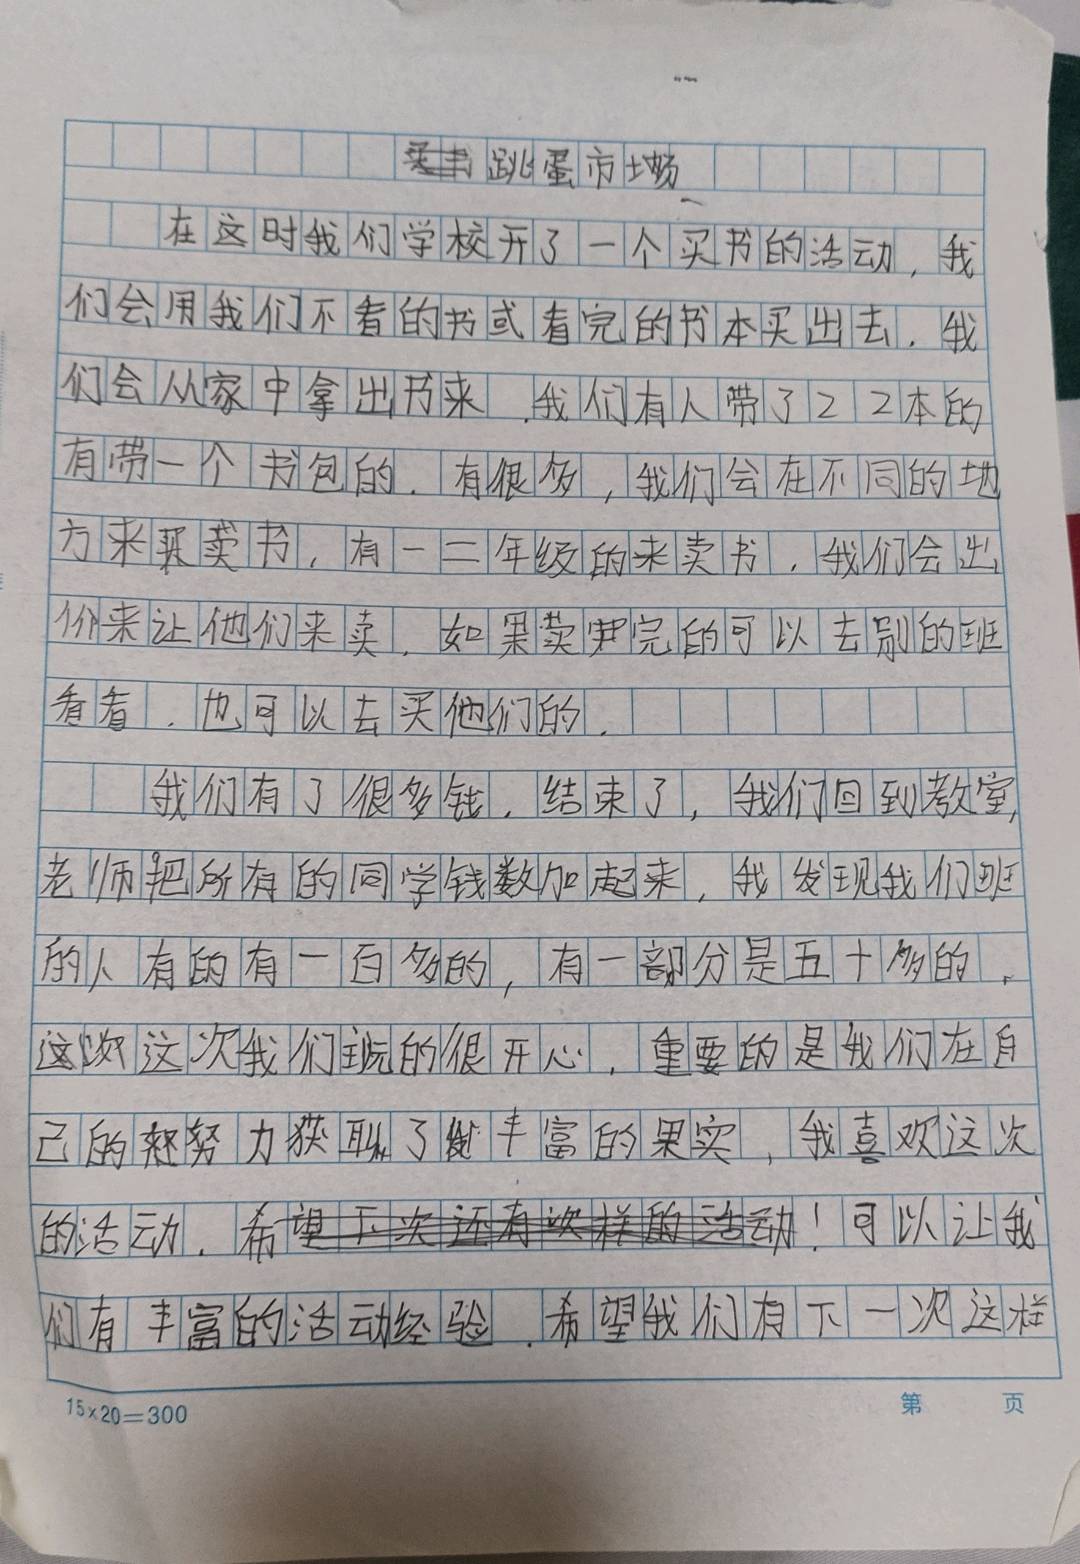 跳蛋市场
在这时我们学校开了一个买书的活动，我
们会用我们不看的书或看完的书本买出去．我
们会从家中拿出书来．我们有人带了22本的
有带一个书包的．有很多，我们会在不同的地
方来买卖书，有一二年级的来卖书．我们会出
价来让他们来卖．如果卖完的可以去别的班
看看．也可以去买他们的．
我们有了很多钱．结束了，我们回到教室，
老师把所有的同学钱数加起来，我发现我们班
的人有的有一百多的，有一部分是五十多的．
这次我们玩的很开心．重要的是我们在自
己的努力获取了丰富的果实，我喜欢这次
的活动．希望下次还有次样的活动！可以让我
们有丰富的活动经验．希望我们有下一次这样
15×20=300
第 页